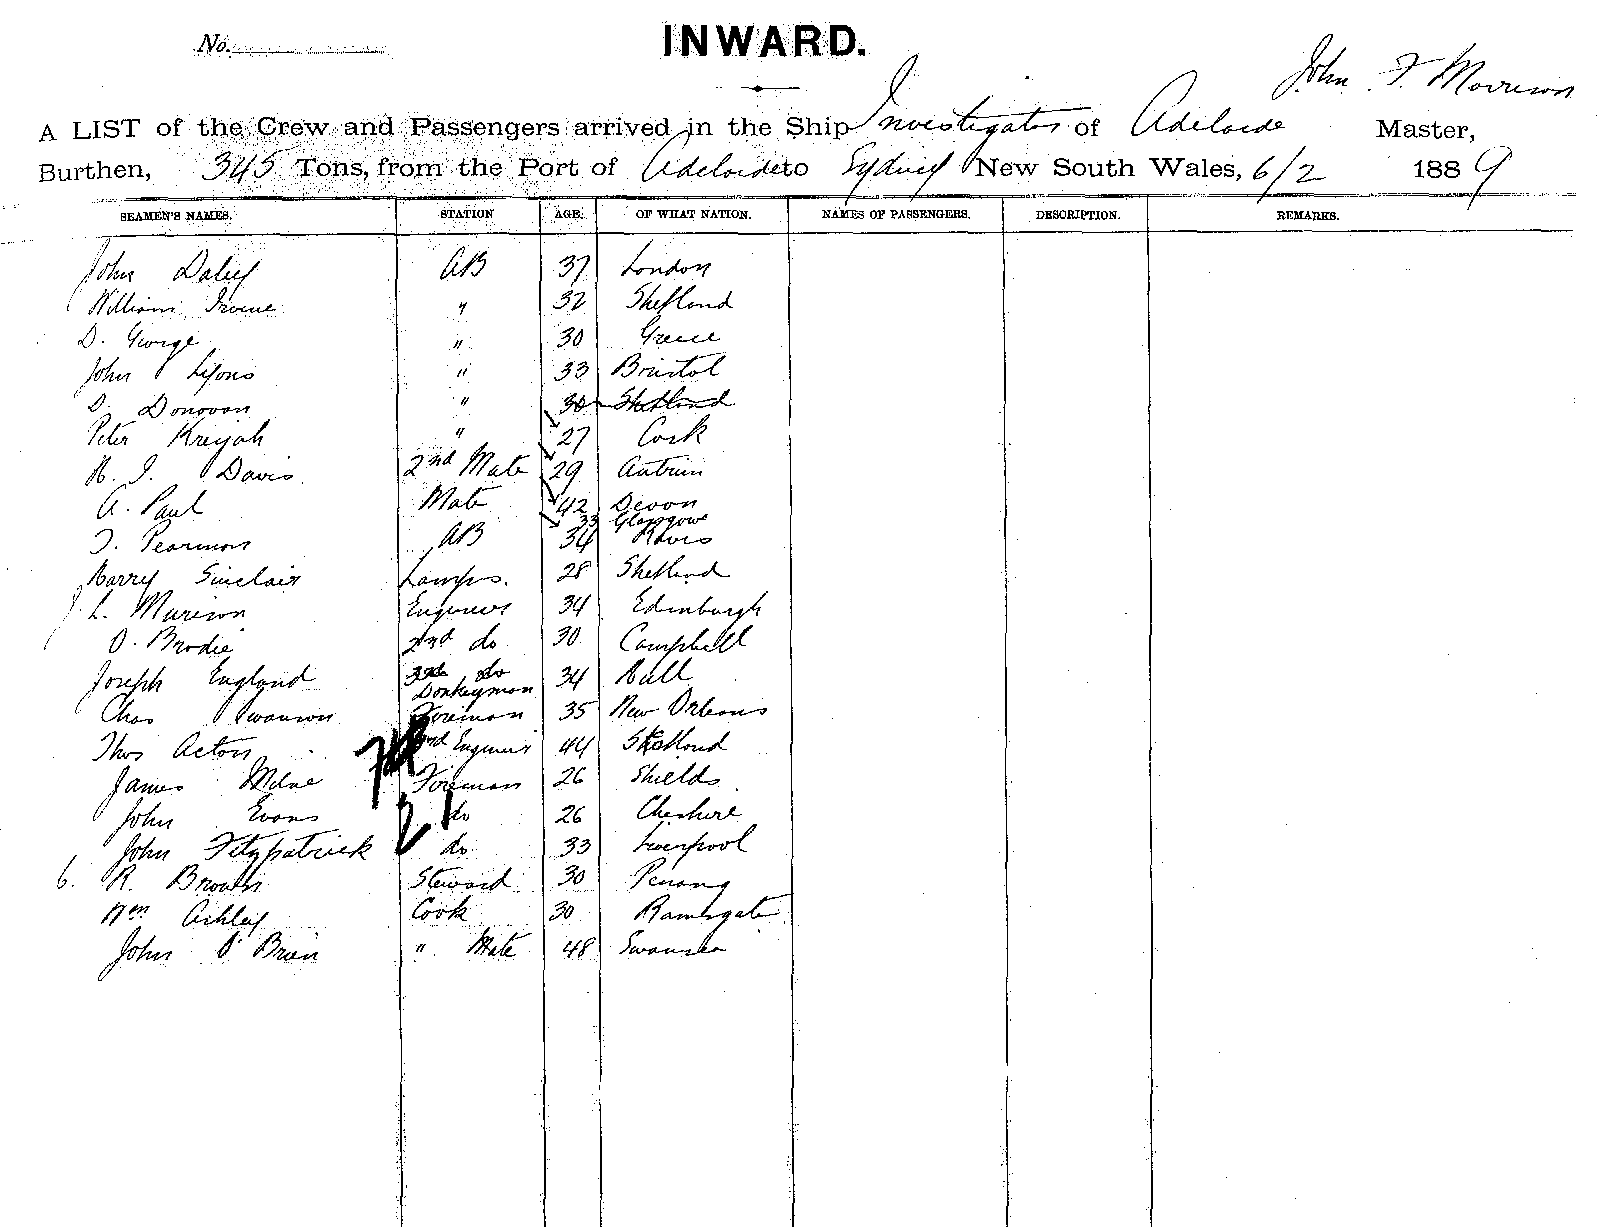 No.
INWARD.
John F Morrison
A LIST of the Crew and Passengers arrived in the Ship Investigator of Adelaide Master,
Burthen, 345 Tons, from the Port of Adelaide to Sydney New South Wales, 6/2 1889
SEAMEN'S NAMES. STATION AGE. OF WHAT NATION. NAMES OF PASSENGERS. DESCRIPTION. REMARKS.
John Daley AB 37 London
William Irvine " 32 Shetland
D. George " 30 Greece
John Lyons " 33 Bristol
D. Donovan " 30 Shetland
Peter Kreyah " 27 Cork
H. J. Davis 2nd Mate 29 Antrim
A. Paul Mate 42 Devon
33 Glasgow
J. Pearmon AB 34
Harry Sinclair Lamps. 28 Shetland
J. L. Murison Engineer 34 Edinburgh
D. Brodie 2nd do 30 Campbell
Joseph England 3rd do Donkeyman 34 Hull
Chas Swanson Foreman 35 New Orleans
Thos Acton 3rd Engineer 44 Shetland
James Milne Foreman 26 Shields
John Evans do 26 Cheshire
John Fitzpatrick do 33 Liverpool
6. R. Brown Steward 30 Penang
Wm Ashley Cook 30 Ramsgate
John O'Brien " Mate 48 Swansea